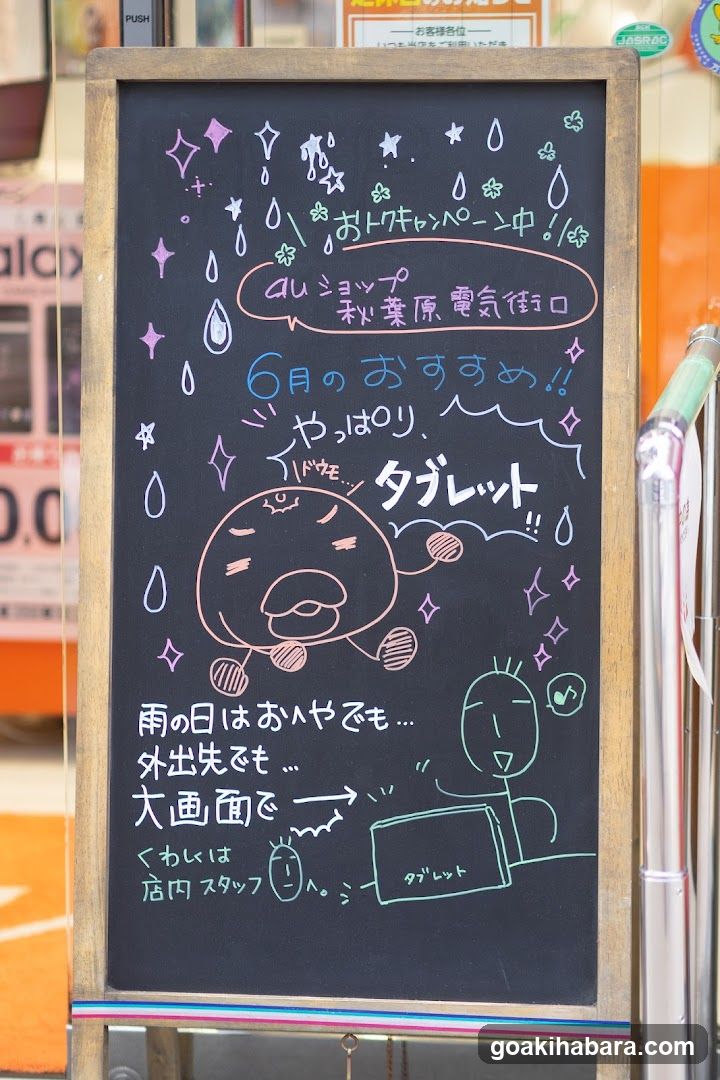 PUSH
―お客様各位―
いつも当店をご利用いただき
JASRAC
おトクキャンペーン中!!
auショップ
秋葉原電気街口
6月のおすすめ!!
やっぱり、
ドウモ...
タブレット!!
雨の日はおへやでも...
外出先でも...
大画面で→
タブレット
くわしくは
店内スタッフへ。
goakihabara.com